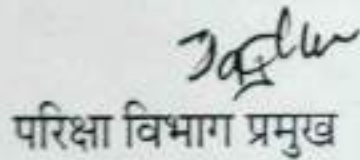 परिक्षा विभाग प्रमुख